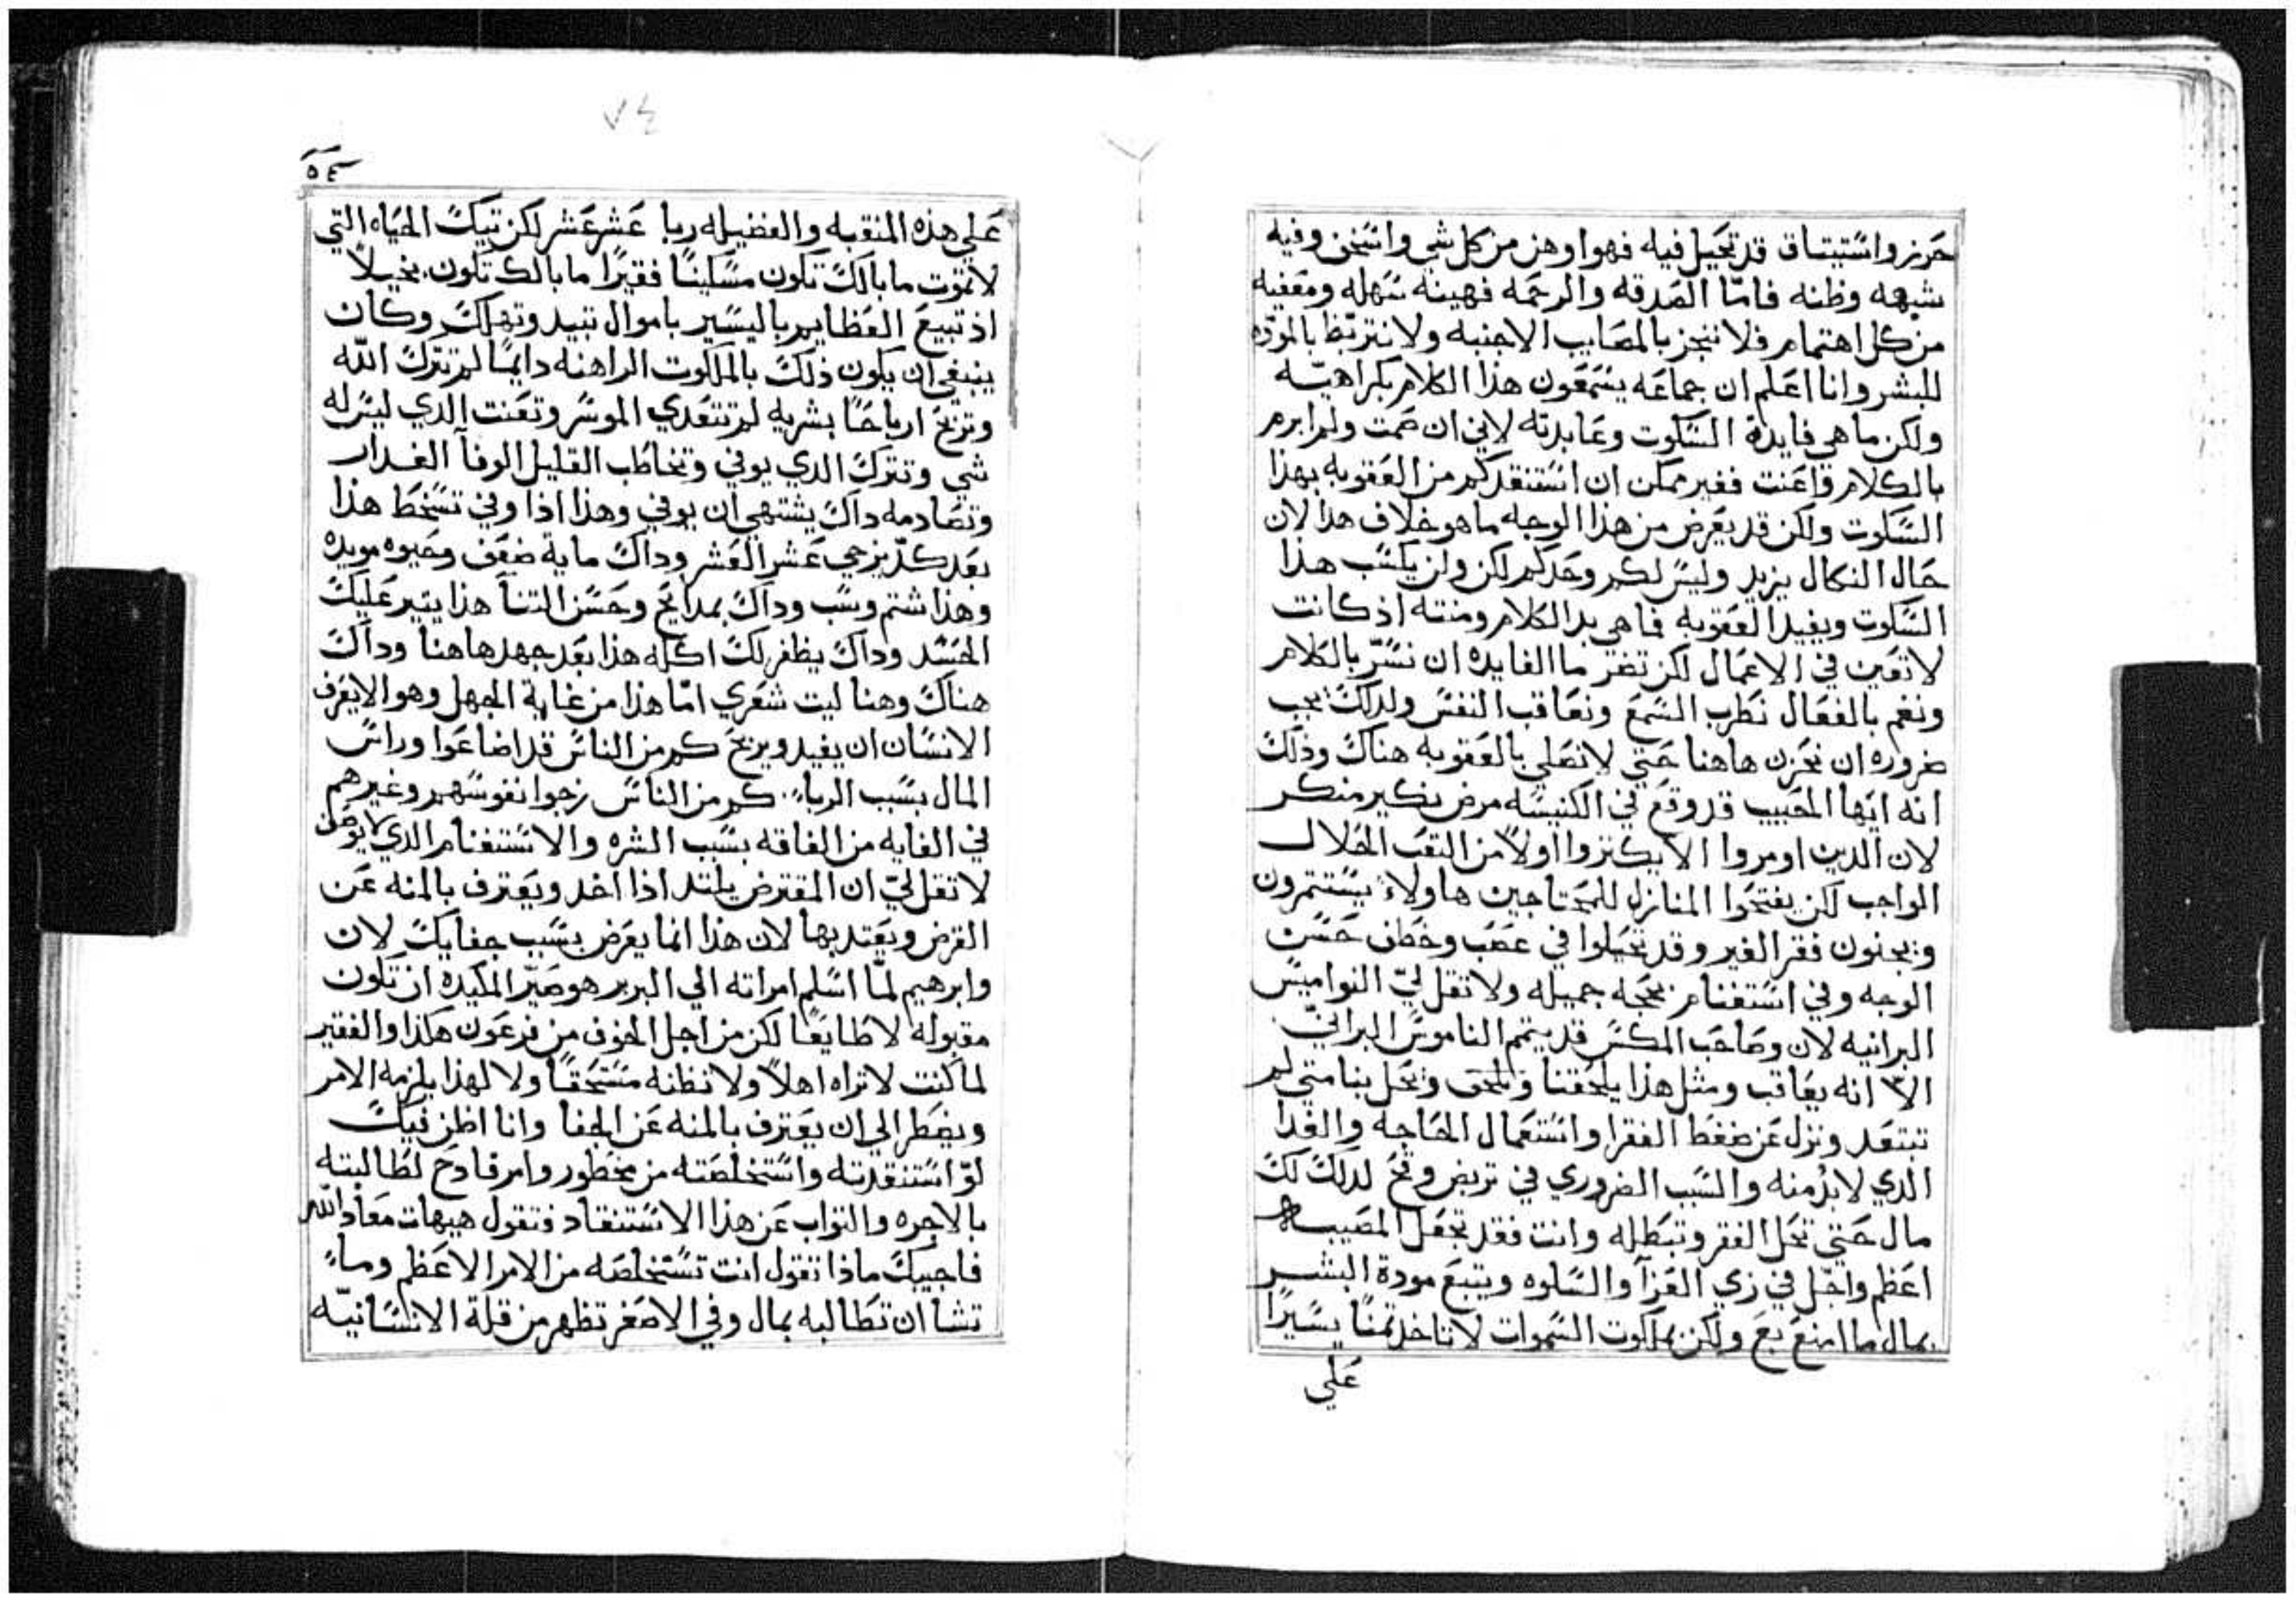 حَريز واسٌتيتاق قد تحَيل فيه فهو اوهن من كل شي واسٌخن وفيه
شبهه وظنه فامّا الصَدقه والرحَمه فهينه سٌهله ومعَفيه
من كل اهتمام فلا نتجز بالمصَايب الاجنبه ولا نتربّط بالمودّه
للبشر وانا اعَلم ان جماعَه يسٌمعَون هذا الكلام بكراهيّه
ولكن ما هي فايدة السٌكوت وعَايدته لاني ان صَمت ولم ابرم
بالكلام واعَنت فغير ممكن ان اسٌتنقدكم من العَقوبه بهذا
السٌكوت ولكن قد يعَرض من هذا الوجه ما هو خلاف هدا لان
حَال النكال يزيد وليسٌ لكم وحَدكم لكن ولن يكسٌب هذا
السٌكوت ويفيد العَقوبه فما هي يد الكلام ومنته اذ كانت
لا تعَين في الاعَمال لكن تضر ما الفايده ان نسٌرّ بالكلام
ونغم بالفعَال نطَرب السٌمعَ ونعَاقب النفسٌ ولدلكٌ يجب
ضروره ان نحَزن هاهنا حَتي لا نصَلي بالعَقوبه هناكٌ وذلكٌ
انه ايها المحَبيب قد وقعَ في الكنيسٌه مرض نكير منكر
لان الدين اومروا الا يكتزوا اولاً من التعَب الحَلال
الواجب لكن يفتحَوا المنازل للمحَتاجين هاولاء يسٌتتمرون
ويجنون فقر الغير وقد تحَيلوا في عصَب وخطَف حَسٌن
الوجه وفي اسٌتغنام بحَجه جميله ولا تقل ليّ النواميسٌ
البرانيه لان وصَاحَب المكسٌ قد يتمم الناموسٌ البرانيّ
الا انه يعَاقب ومثل هذا يلحَقنا ويلحَق ويحَل بنا متي لم
تبتعَد ونزل عَن ضغطَ الفقرا واسٌتعَمال الحَاجه والغدا
الدي لابدّ منه والسٌبب الضروري في تربض وقحَ لدلكٌ لكٌ
مال حَتي تحَل الفقر وتبطَله وانت فقد تجعَل المصَيبه
اعَظم واجّل في زي العَزآ والسٌلوه ويتبعَ مودة البشر
بمال ما امنعَ بعَ ولكن بملكوت السٌموات لا تاخد تمناً يسٌيراً
عَلي
٥٤
٧٤
عَلي هذه المنقبه والفضيله ربا عَشر عَشر لكن تيكٌ الحَياه التي
لا تموت ما بالكٌ تكون مسٌكيناً فقيرًا ما بالك تكون بخيلاً
اذ تبيعَ العَظايم باليسٌير باموال تبيد وتهلكٌ وكان
ينبغي ان يكون ذلكٌ بالملكوت الراهنه دايماً لم تتركٌ اللّه
وتربحَ ارباحَاً بشريه لم تتعَدي الموسٌر وتعَنت الدي ليسٌ له
شي وتتركٌ الدي يوفي وتخاطَب القليل الوفآ الغدار
وتصَادمه داكٌ يشتهي ان يوفي وهذا اذا وفي تسٌخطَ هذا
بعَد كدّ يزجي عَشر العَشر وداكٌ ماية ضعَف وحَيوه موبده
وهذا شتم وسٌب وداكٌ بمدايحَ وحَسٌن التنآ هذا يتير عَليكٌ
الحَسٌد وداكٌ يظفر لكٌ اكله هذا بعَد جهد هاهنا وداكٌ
هناكٌ وهنا ليت شعَري امّا هذا من غاية الجهل وهو الا يعَرف
الانسٌان ان يفيد ويربحَ كم من الناسٌ قد اضاعَوا وراسٌ
المال بسٌبب الربا كم من الناسٌ زجوا نفوسٌهم وغيرهم
في الغايه من الفاقه بسٌبب الشره والاسٌتغنام الدي لا يوصَف
لا تقل ليّ ان المقترض يلتد اذا اخد ويعَترف بالمنه عَن
القرض ويعَتد بها لان هذا انما يعَرض بسٌبب جفايكٌ لان
وابرهيم لمّا اسٌلم امراته الي البربر هو صَيّر المكيده ان تكون
مقبوله لا طَايعَاً لكن من اجل الخوف من فرعَون هكذا والفقير
لما كنت لا تراه اهلاً ولا تظنه مسٌتحَقاً ولا لهذا يلزمه الامر
ويضطَر الي ان يعَترف بالمنه عَن الجفا وانا اظن فيكٌ
لوّ اسٌتنقدته واسٌتخلصَته من محَظور وامر فادحَ لطَالبته
بالاجره والتواب عَن هذا الاسٌتنقاد فتقول هيهات معَاد اللّه
فاجيبكٌ ماذا تقول انت تسٌتخلصَه من الامر الاعَظم وما
تشا ان تطَالبه بمال وفي الاصَغر تظهر من قلة الانسٌانيّه